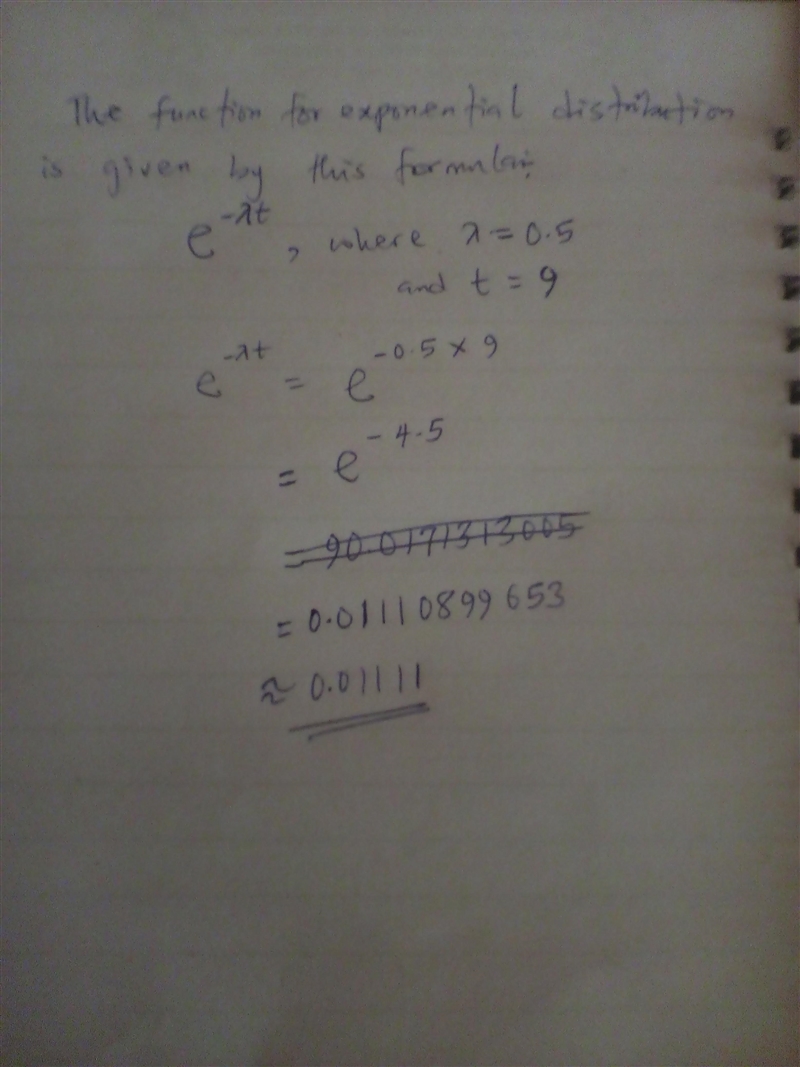 The function for exponential distribution
is given by this formula:
e^{-λt}, where λ = 0.5
and t = 9
e^{-λt} = e^{-0.5 × 9}
= e^{-4.5}
= 90.0171313005
= 0.01110899653
≈ 0.01111